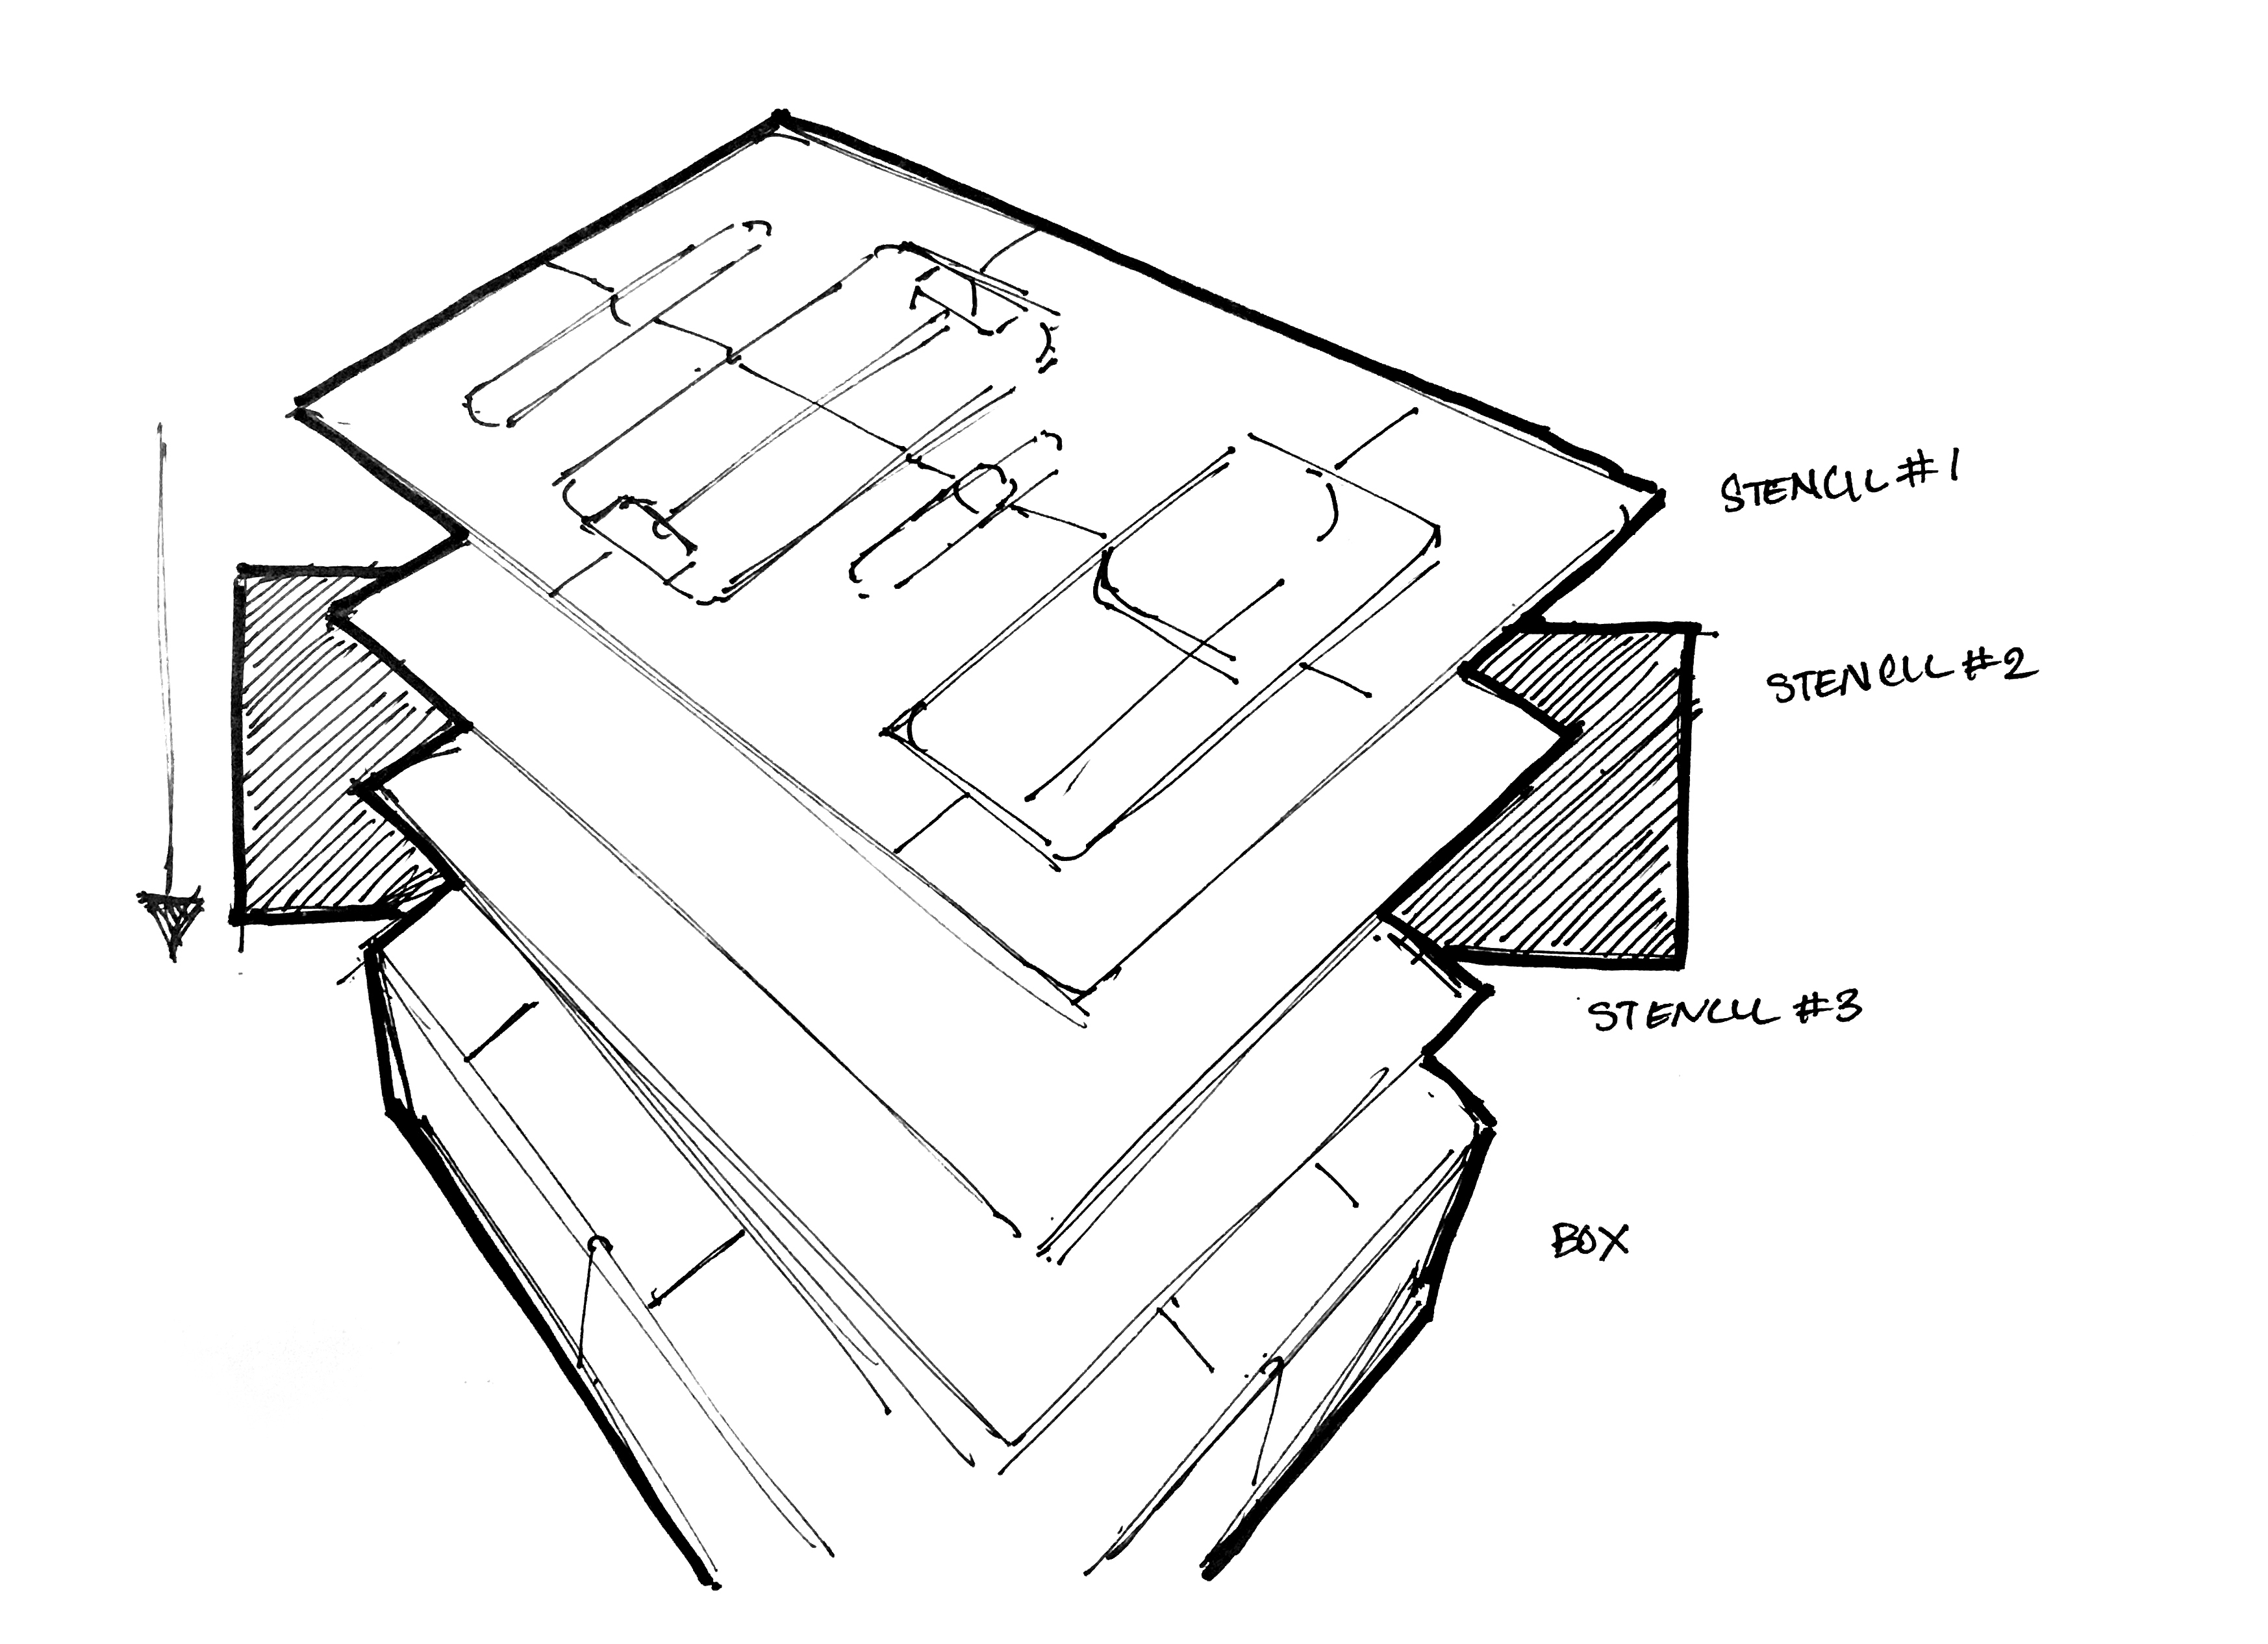 STENCIL #1
STENCIL #2
STENCIL #3
BOX